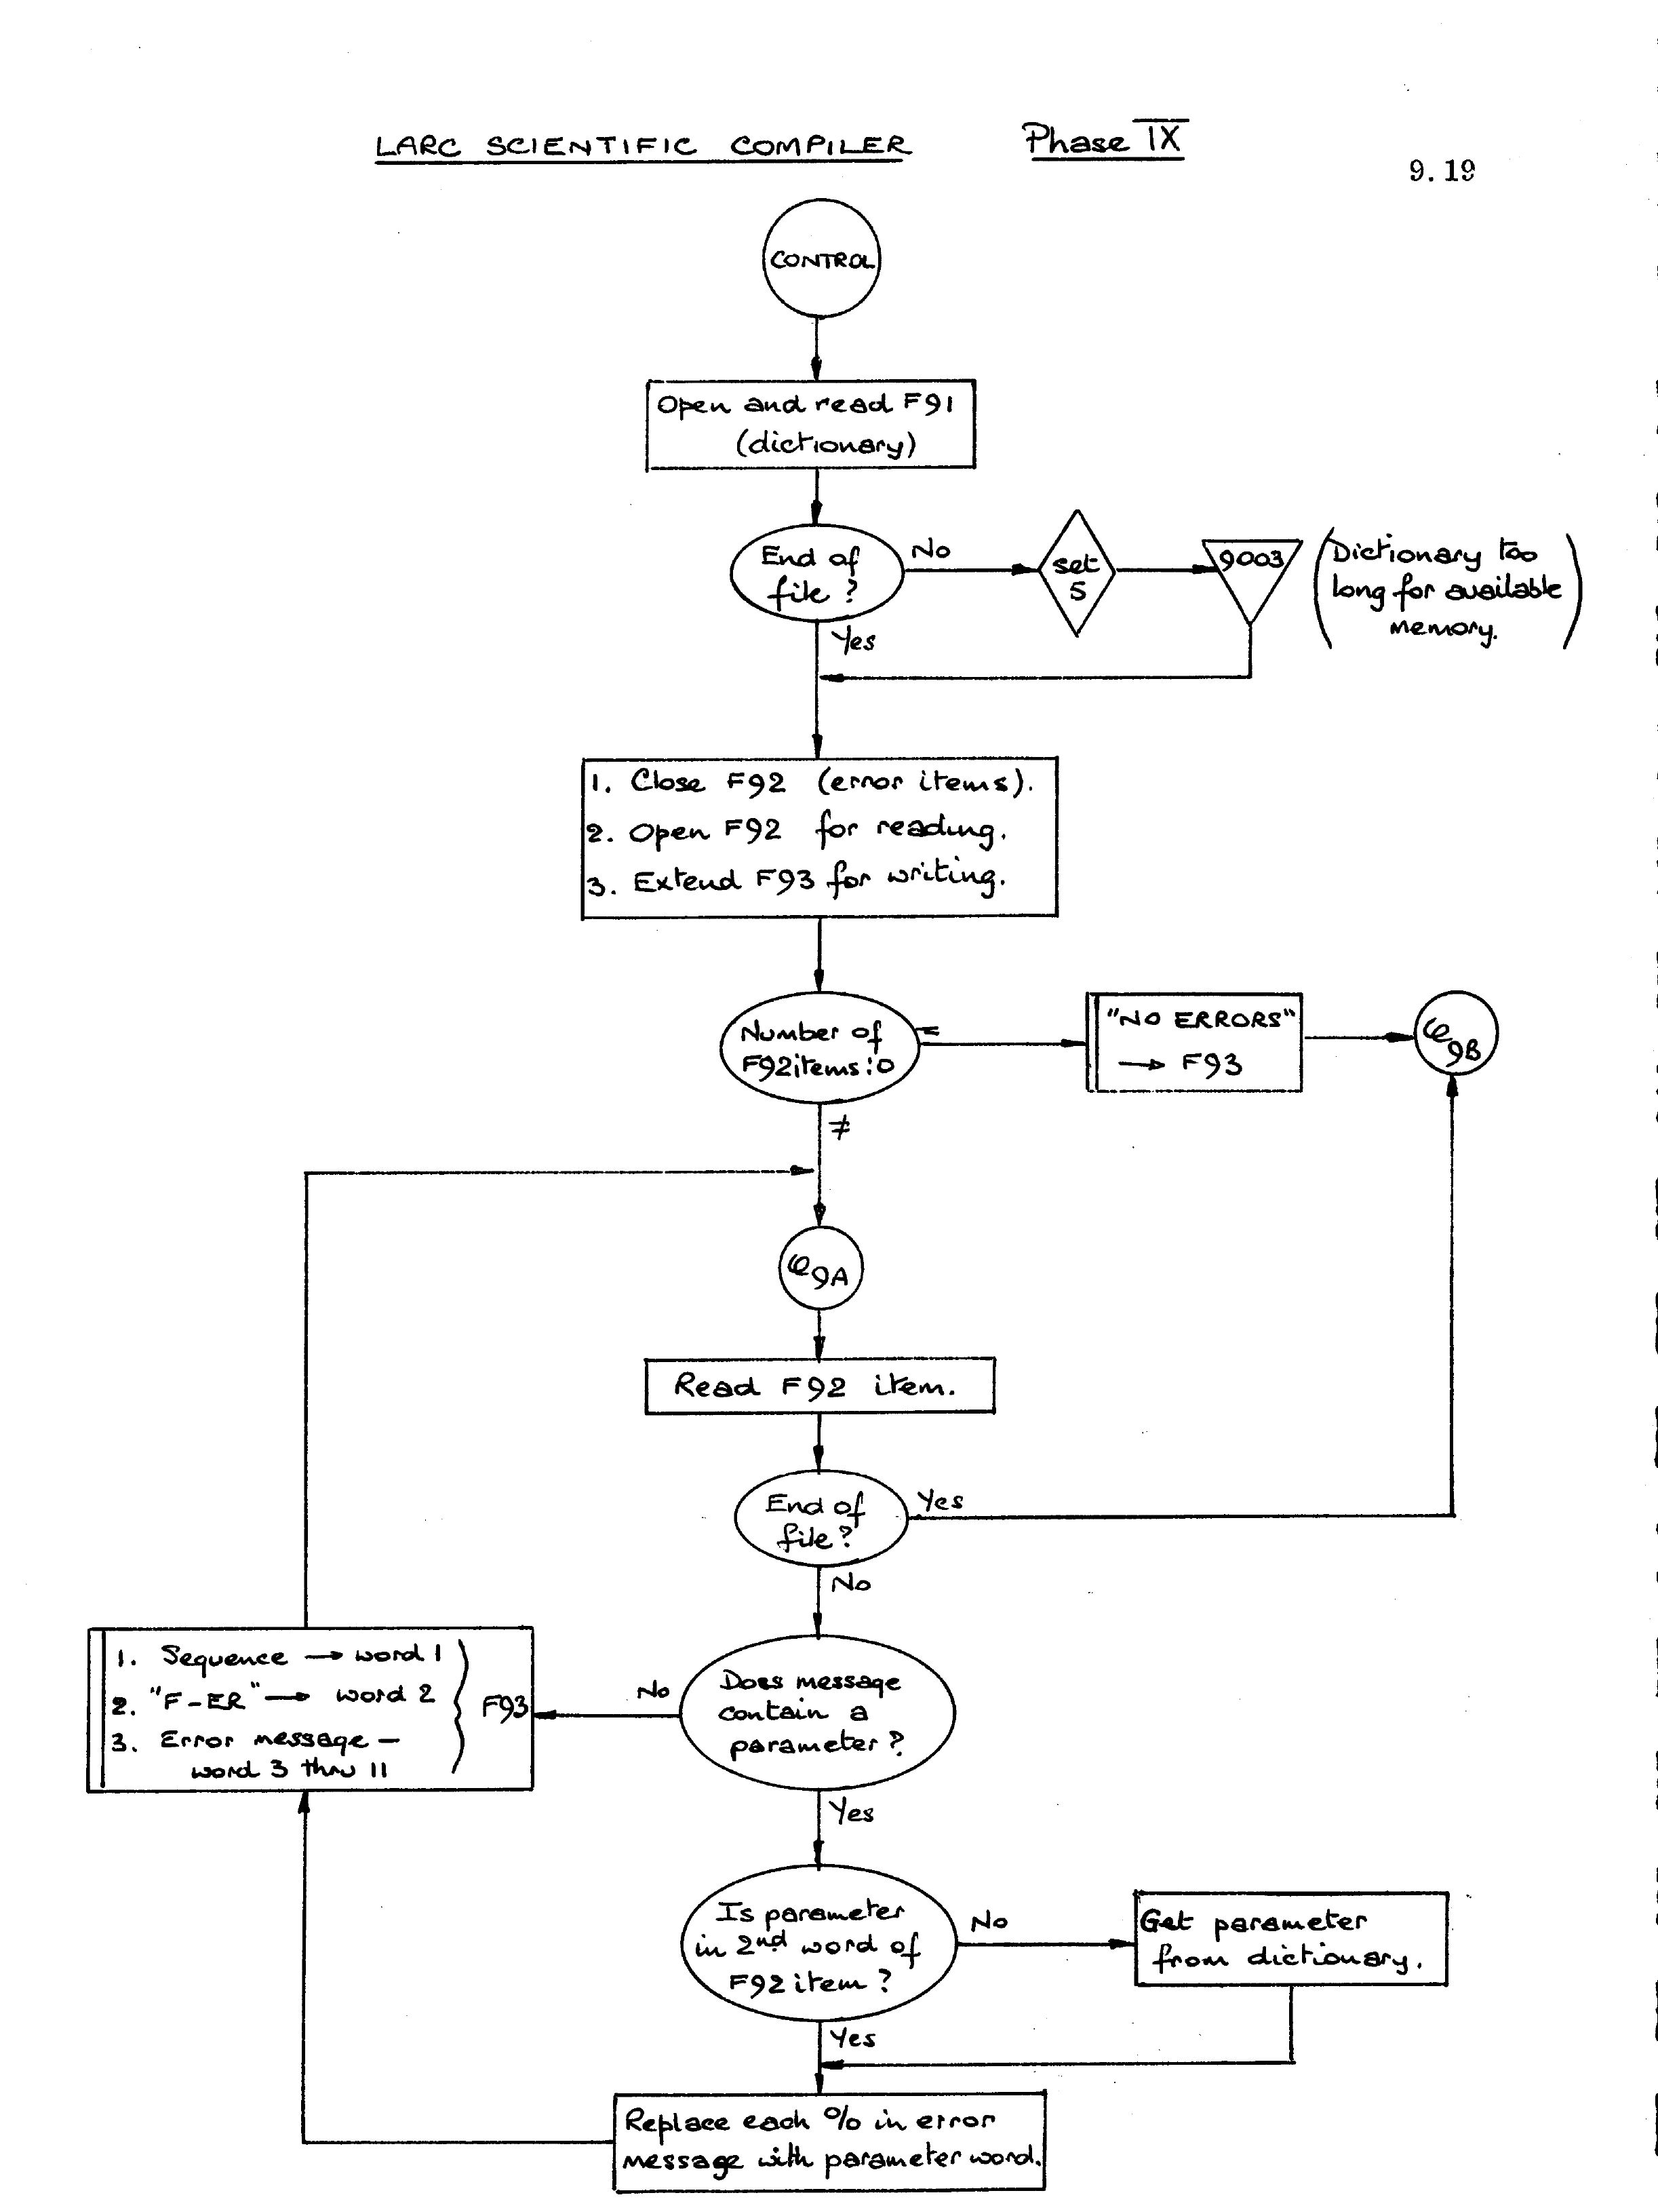 LARC SCIENTIFIC COMPILER Phase IX
9.19
CONTROL
Open and read F91
(dictionary)
End of
file?
No
set
5
9003
(Dictionary too
long for available
memory.)
Yes
1. Close F92 (error items).
2. Open F92 for reading.
3. Extend F93 for writing.
Number of
F92 items:0
=
"NO ERRORS"
→ F93
φ9B
≠
φ9A
Read F92 item.
End of
file?
Yes
No
Does message
contain a
parameter?
No
1. Sequence → word 1
2. "F-ER" → word 2
3. Error message –
word 3 thru 11
F93
Yes
Is parameter
in 2nd word of
F92 item?
No
Get parameter
from dictionary.
Yes
Replace each % in error
message with parameter word.